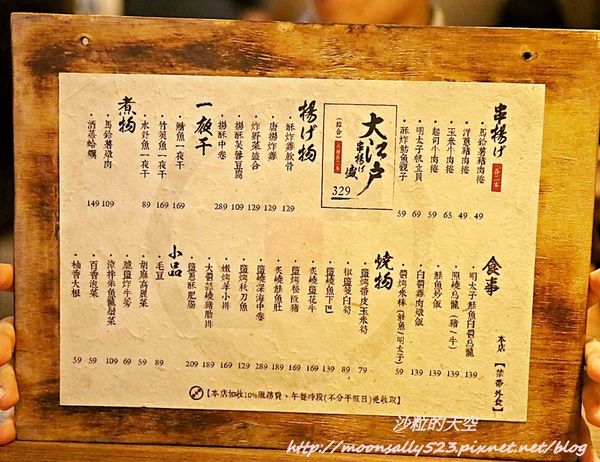 串揚げ
各二本
馬鈴薯豬肉捲 49
洋蔥豬肉捲 49
玉米牛肉捲 65
起司牛肉捲 59
明太子帆立貝 69
酥炸魴魚親子 59
大江戶
串揚げ
盛
(綜合)
329
揚げ物
酥炸雞軟骨 129
唐揚炸雞 129
炸野菜盛合 129
揚酥芙蓉豆腐 109
揚酥中卷 289
一夜干
鯖魚一夜干 169
竹筴魚一夜干 169
水針魚一夜干 89
煮物
馬鈴薯燉肉 109
酒蒸蛤蠣 149
食事
明太子鮭魚白醬烏龍 139
照燒烏龍(豬/牛) 139
鮭魚炒飯 139
白醬雞肉燉飯 139
醬烤米林(鮭魚/明太子) 59
燒物
鹽烤帶皮玉米筍 79
椒鹽茭白筍 89
鹽燒魚下巴 149
炙燒鹽花牛 169
鹽烤松阪豬 189
炙燒鮭魚肚 189
鹽燒深海中卷 289
鹽烤秋刀魚 129
嫩烤羊小排 169
大醬蒜燒豬肋排 189
鹽蔥酥肥腸 209
小品
毛豆 89
胡麻高麗菜 59
脆鹽炸牛蒡 69
涼拌柴魚龍鬚菜 109
百香泡菜 59
柚香大根 59
本店【禁帶外食】
【本店加收10%服務費，午餐時段(不分平假日)免收取】
沙粒的天空
http://moonsally523.pixnet.net/blog